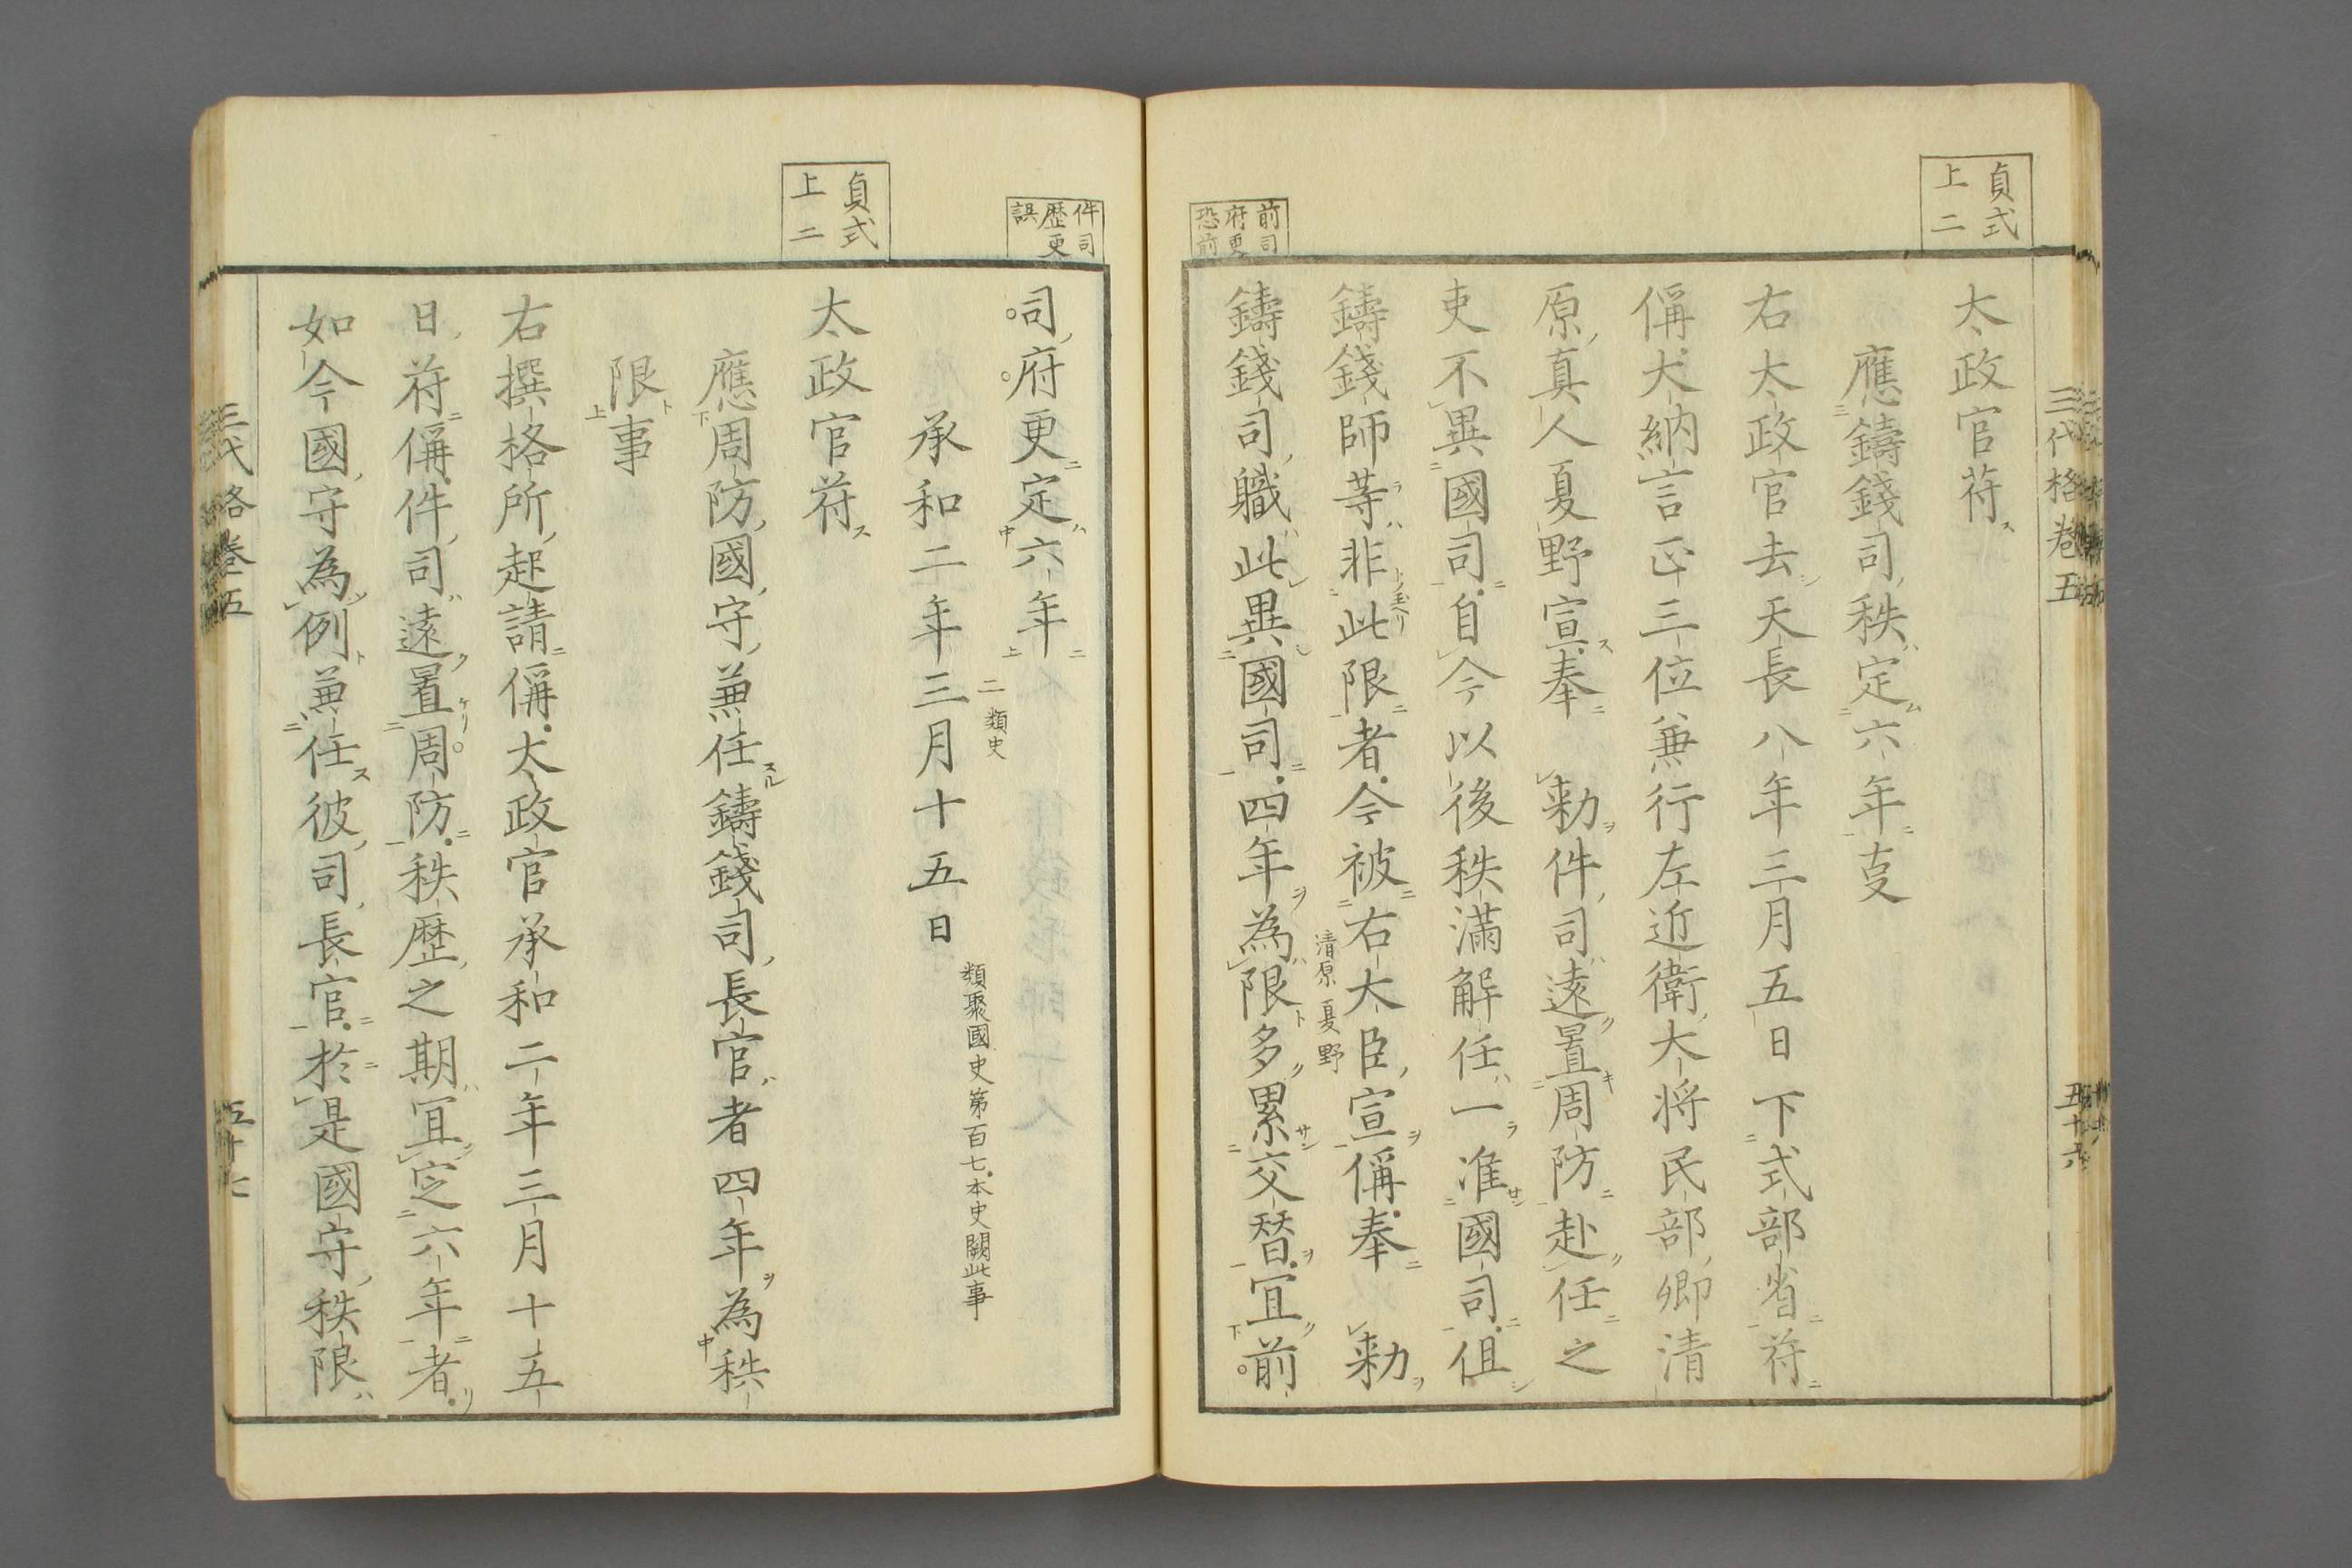 貞式
上二
三代格卷五
五十六
太政官符ス
應鑄錢司秩定六年㕝
右太政官去天長八年三月五日下式部省符
偁大納言正三位兼行左近衛大将民部卿清
原真人夏野宣奉　勅件司遠置周防赴任之
吏不異國司自今以後秩滿解任一准國司但
鑄錢師等非此限者今被右大臣宣偁奉　勅
清原夏野
鑄錢司職此異國司四年為限多累交替宜前
前司
府更
恐前
件司
歴更
誤
司府更定六年
二類史
承和二年三月十五日
類聚國史第百七本史闕此事
貞式
上二
太政官符ス
應周防國守兼任鑄錢司長官者四年為秩
限事
右撰格所起請偁太政官承和二年三月十五
日符偁件司遠置周防秩歴之期宜定六年者
如今國守為例兼任彼司長官於是國守秩限
三代格卷五
五十七